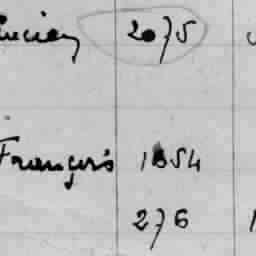 Lucien 2075
François 1854
276